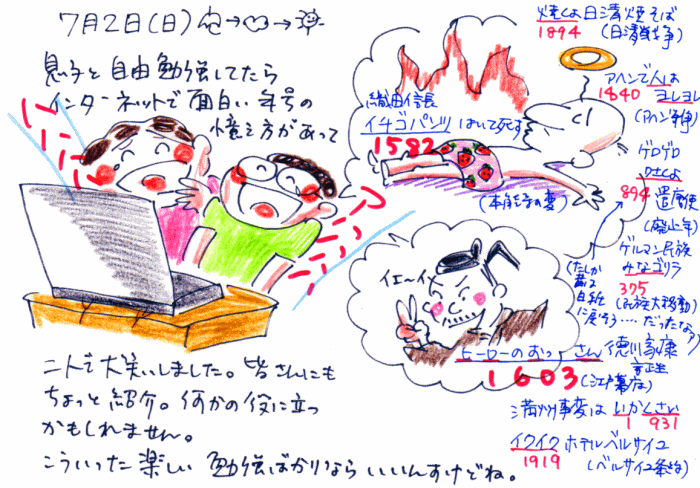 7月2日(日) → →
息子と自由勉強してたら
インターネットで面白い年号の
憶え方があって
織田信長
イチゴパンツはいて死す
1582
(本能寺の変)
焼くよ日清焼そば
1894 (日清戦争)
アヘンで人は
1840 ヨレヨレ
(アヘン戦争)
ゲロゲロ
はくよ
894 遣唐使
(廃止年)
ゲルマン民族
みなゴリラ
375
(民族大移動)
(たしか
昔は
白紙
に戻そう……だったなあ)
イェ〜イ
ヒーローのおっさん 徳川家康
1603 (江戸幕府)
満州事変は いくさい
1 931
イクイク ホテルベルサイユ
1919 (ベルサイユ条約)
二人で大笑いしました。皆さんにも
ちょっと紹介。何かの役に立つ
かもしれません。
こういった楽しい勉強ばかりならいいんすけどね。